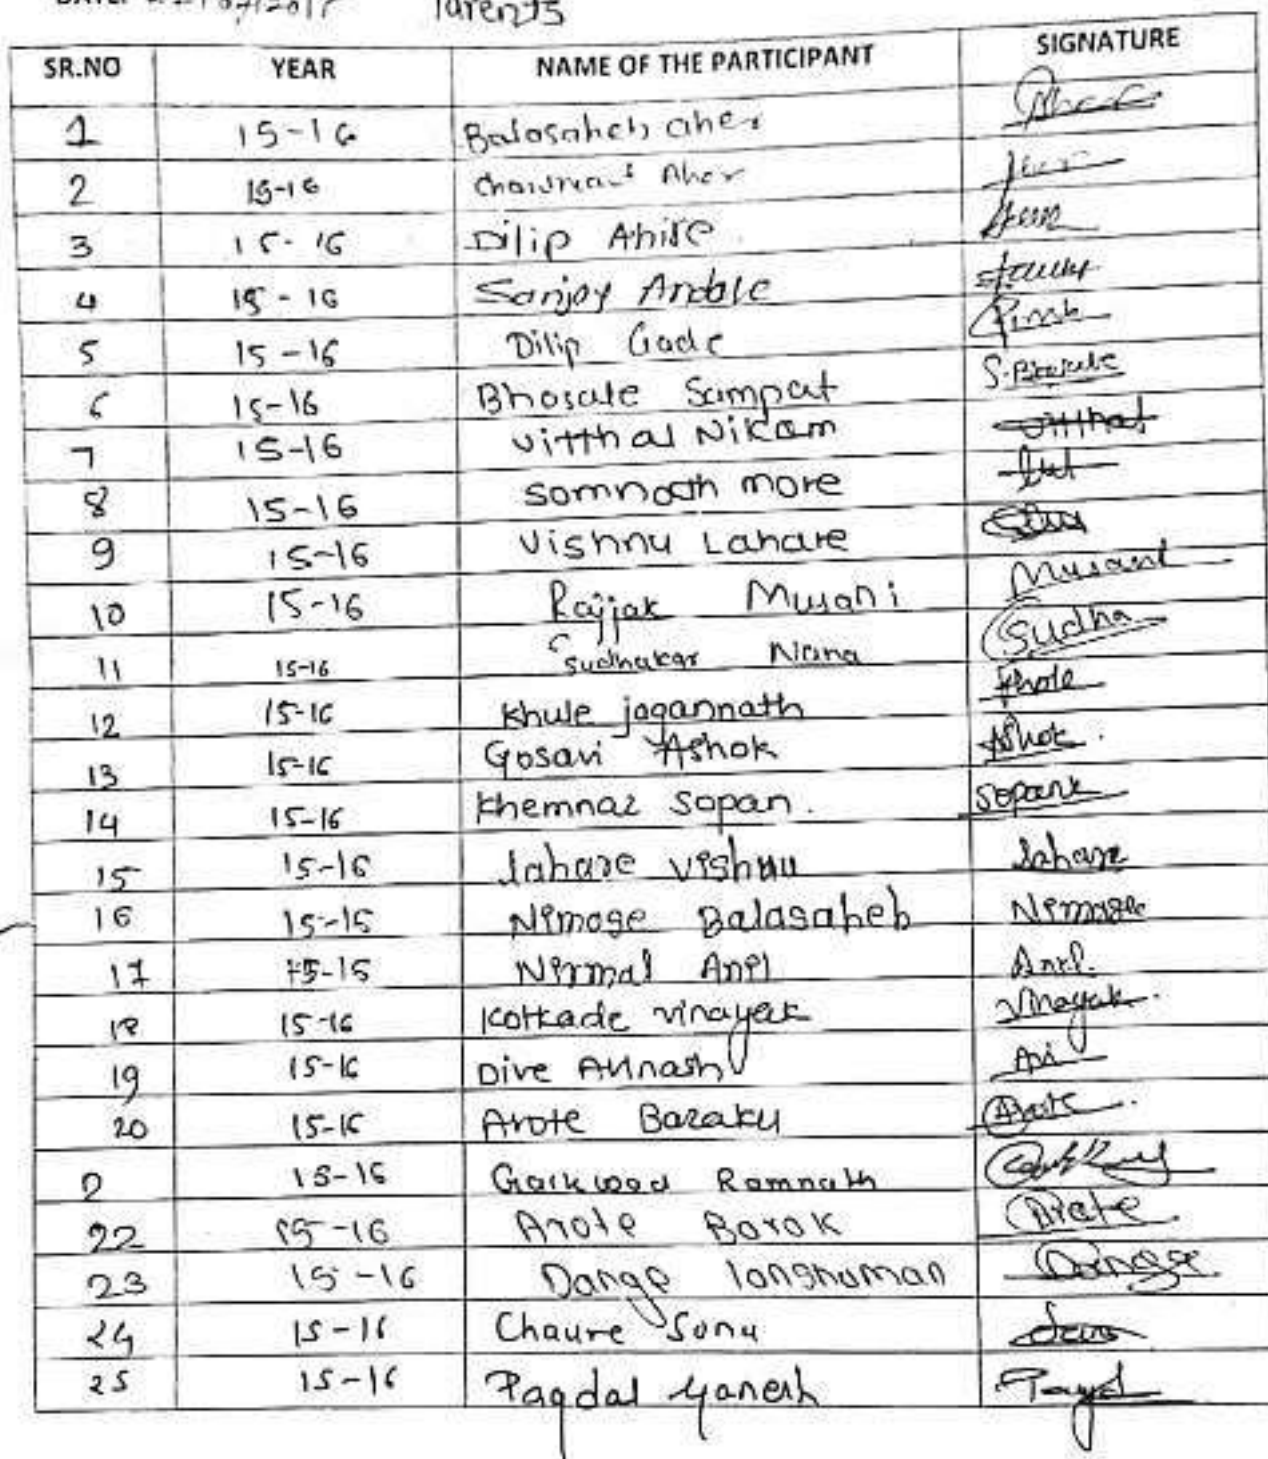 Parents
SR.NO YEAR NAME OF THE PARTICIPANT SIGNATURE
1 15-16 Balasaheb aher
2 15-16 Aher
3 15-16 Dilip Ahire
4 15-16 Sanjay Andale
5 15-16 Dilip Gade
6 15-16 Bhosale Sampat S.Bhosale
7 15-16 Vitthal Nikam Vitthal
8 15-16 Somnath more
9 15-16 Vishnu Lahare
10 15-16 Rajjak Musani Musani
11 15-16 Sudhakar Nana Sudha
12 15-16 Khule jagannath
13 15-16 Gosavi Ashok Ashok.
14 15-16 Khemnar Sopan. Sopank
15 15-16 Lahare Vishnu Lahare
16 15-15 Nimase Balasaheb Nimase
17 15-15 Nirmal Anil Anil.
18 15-16 Kotkade vinayak Vinayak.
19 15-16 Dive Avinash Avi
20 15-16 Arote Baraku Arote.
2 15-16 Gaikwad Ramnath
22 15-16 Arote Barak Arote
23 15-16 Dange Dange
24 15-16 Chaure Sonu
25 15-16 Pagdal Ganesh